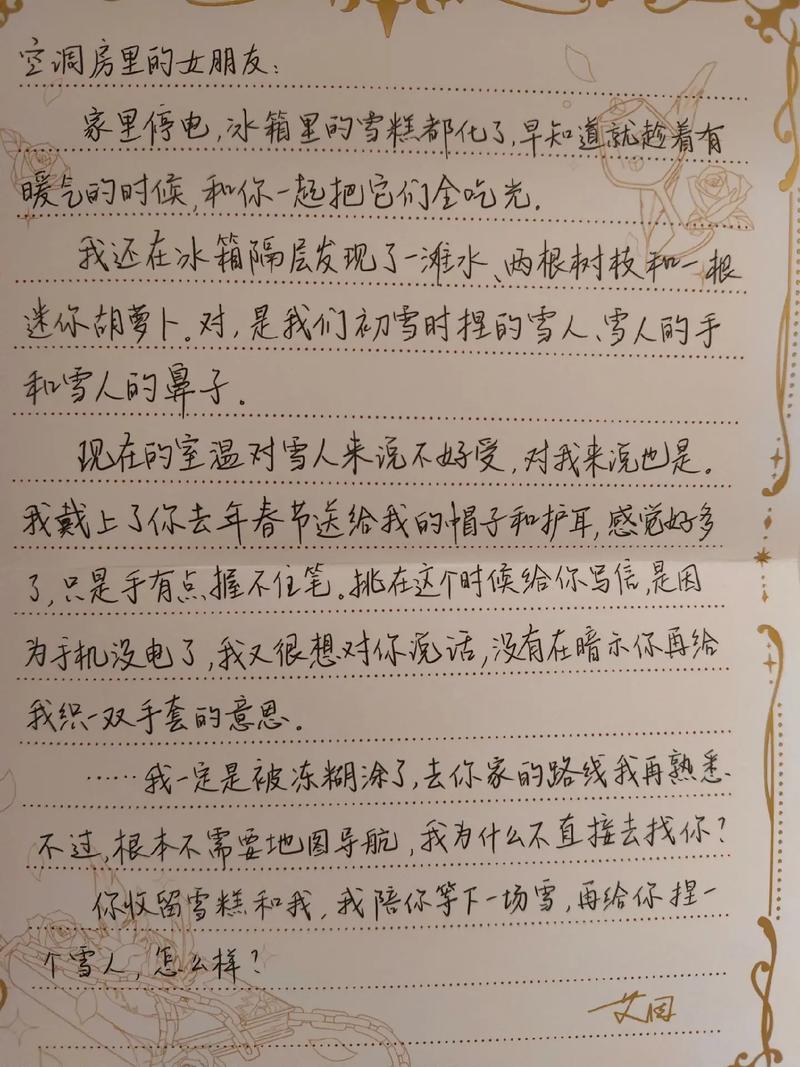 空调房里的女朋友：
家里停电，冰箱里的雪糕都化了，早知道就趁着有
暖气的时候，和你一起把它们全吃光。
我还在冰箱隔层发现了一滩水、两根树枝和一根
迷你胡萝卜。对，是我们初雪时捏的雪人、雪人的手
和雪人的鼻子。
现在的室温对雪人来说不好受，对我来说也是。
我戴上了你去年春节送给我的帽子和护耳，感觉好多
了，只是手有点握不住笔。挑在这个时候给你写信，是因
为手机没电了，我又很想对你说话，没有在暗示你再给
我织一双手套的意思。
……我一定是被冻糊涂了，去你家的路线我再熟悉
不过，根本不需要地图导航，我为什么不直接去找你？
你收留雪糕和我，我陪你等下一场雪，再给你捏一
个雪人，怎么样？
艾因